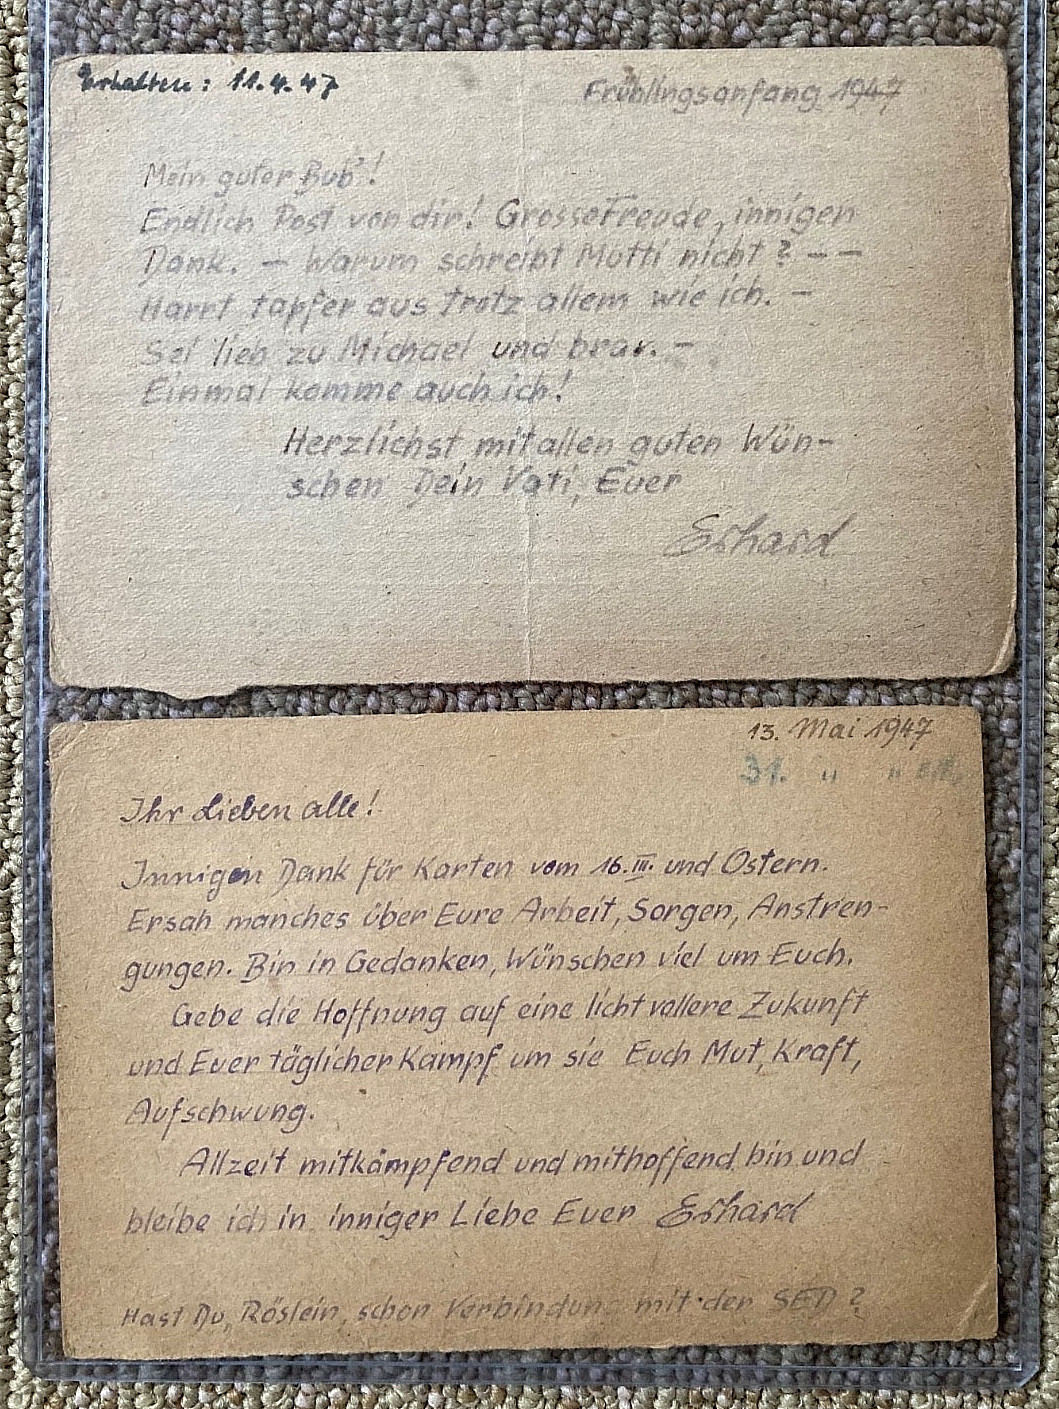 Erhalten: 11.4.47
Frühlingsanfang 1947
Mein guter Bub'!
Endlich Post von dir! Grosse Freude, innigen
Dank. – Warum schreibt Mutti nicht? – –
Harrt tapfer aus trotz allem wie ich. –
Sei lieb zu Michael und brav. –
Einmal komme auch ich!
Herzlichst mit allen guten Wün-
schen Dein Vati, Euer
Erhard
13. Mai 1947
31. " "
Ihr Lieben alle!
Innigen Dank für Karten vom 16.III. und Ostern.
Ersah manches über Eure Arbeit, Sorgen, Anstren-
gungen. Bin in Gedanken, Wünschen viel um Euch.
Gebe die Hoffnung auf eine lichtvollere Zukunft
und Euer täglicher Kampf um sie Euch Mut, Kraft,
Aufschwung.
Allzeit mitkämpfend und mithoffend bin und
bleibe ich in inniger Liebe Euer Erhard
Hast Du, Röslein, schon Verbindung mit der SED?